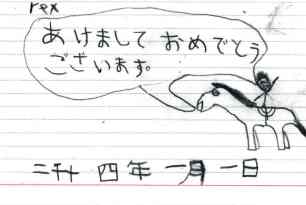 rex
あけまして おめでとう
ございます。
二千 四年 一月 一日